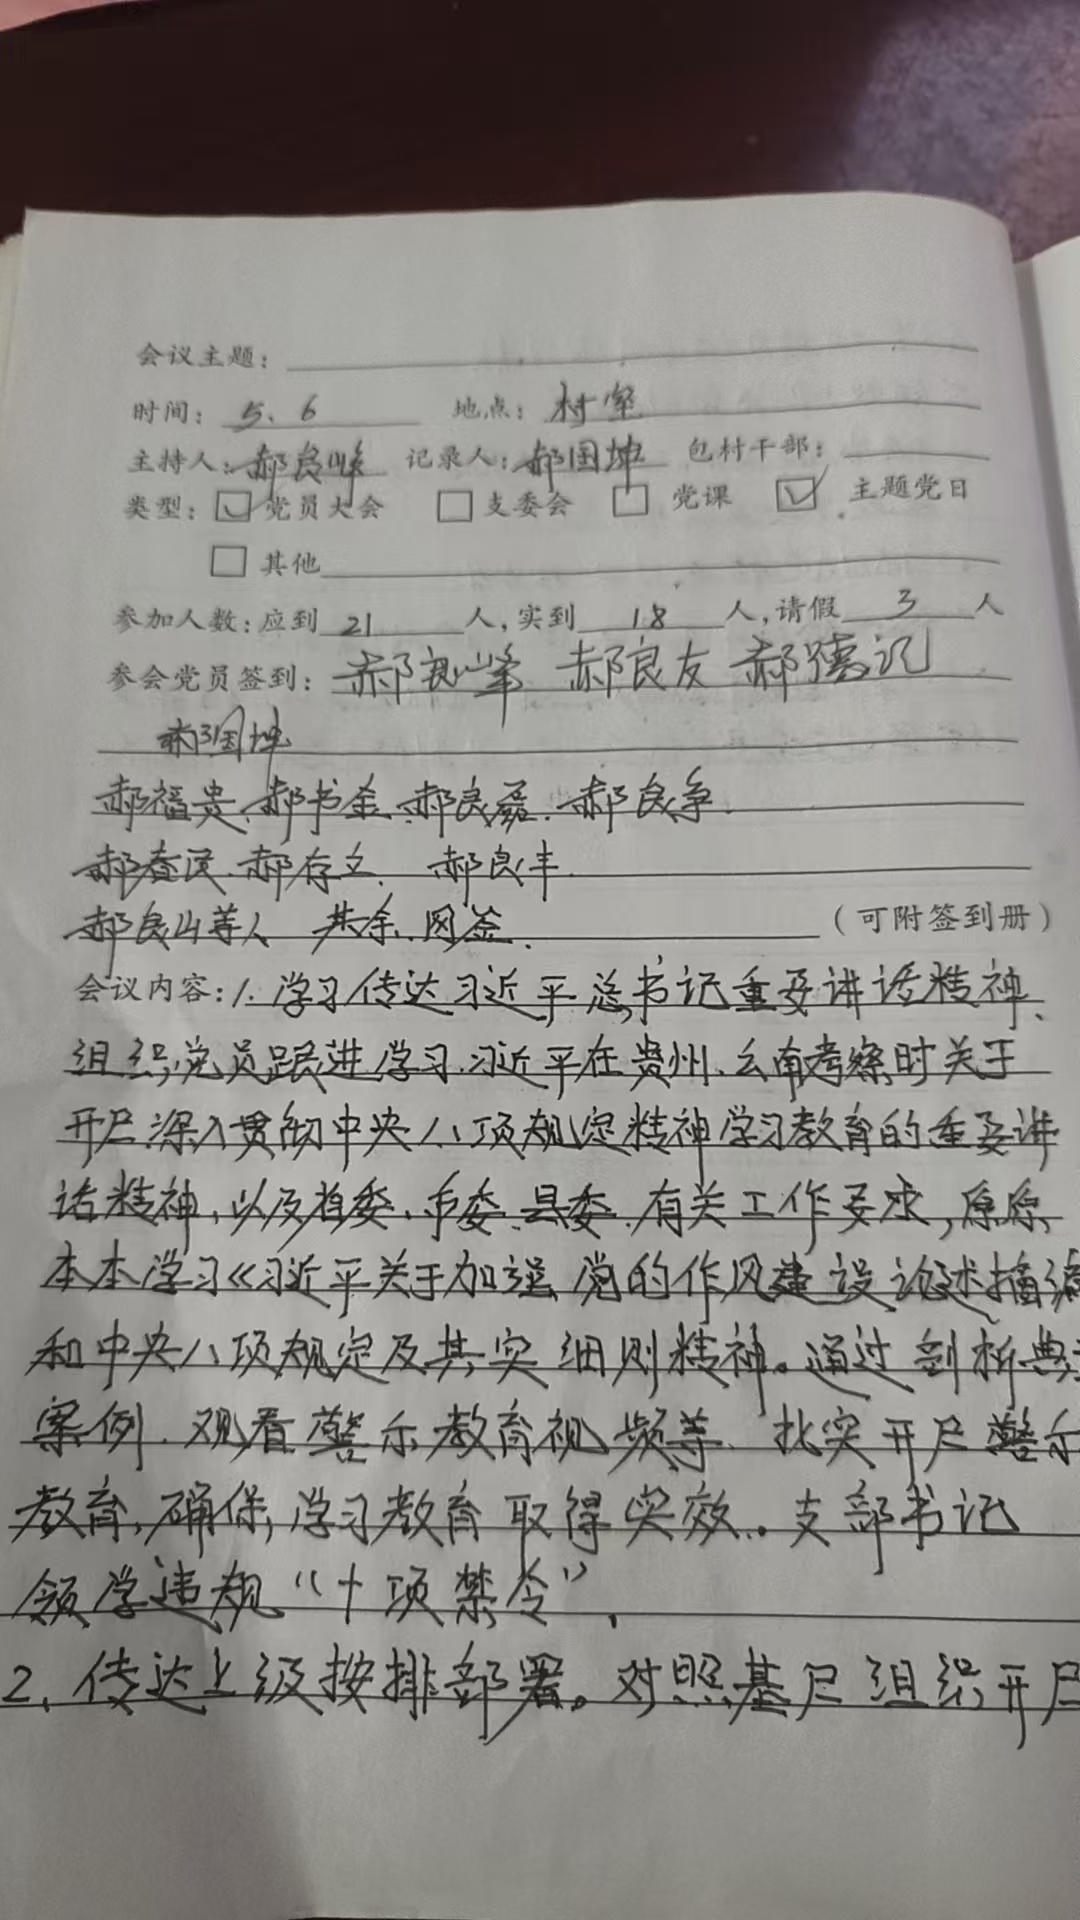 会议主题：
时间：5、6 地点：村室
主持人：郝良峰 记录人：郝国坤 包村干部：
类型：☑党员大会 □支委会 □党课 ☑主题党日
□其他
参加人数：应到 21 人，实到 18 人，请假 3 人
参会党员签到：郝良峰 郝良友 郝德记
郝国坤
郝福贵、郝书金、郝良磊、郝良争
郝春民、郝存立、郝良丰
郝良山等人 其余、网签、（可附签到册）
会议内容：1、学习传达习近平总书记重要讲话精神、
组织党员跟进学习、习近平在贵州、云南考察时关于
开尸深入贯彻中央八项规定精神学习教育的重要讲
话精神，以及省委、市委、县委、有关工作要求，原原
本本学习《习近平关于加强党的作风建设论述摘编
和中央八项规定及其实细则精神。通过剖析典
案例、观看警示教育视频等、扎实开尸警示
教育，确保，学习教育取得实效。支部书记
领学违规“十项禁令”，
2、传达上级按排部署。对照基尸组织开尸